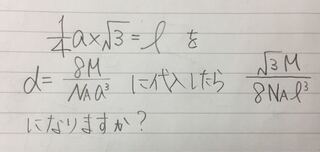 1/4 a×√3=l を
d= 8M/NAa³ に代入したら √3M/8NAl³
になりますか?